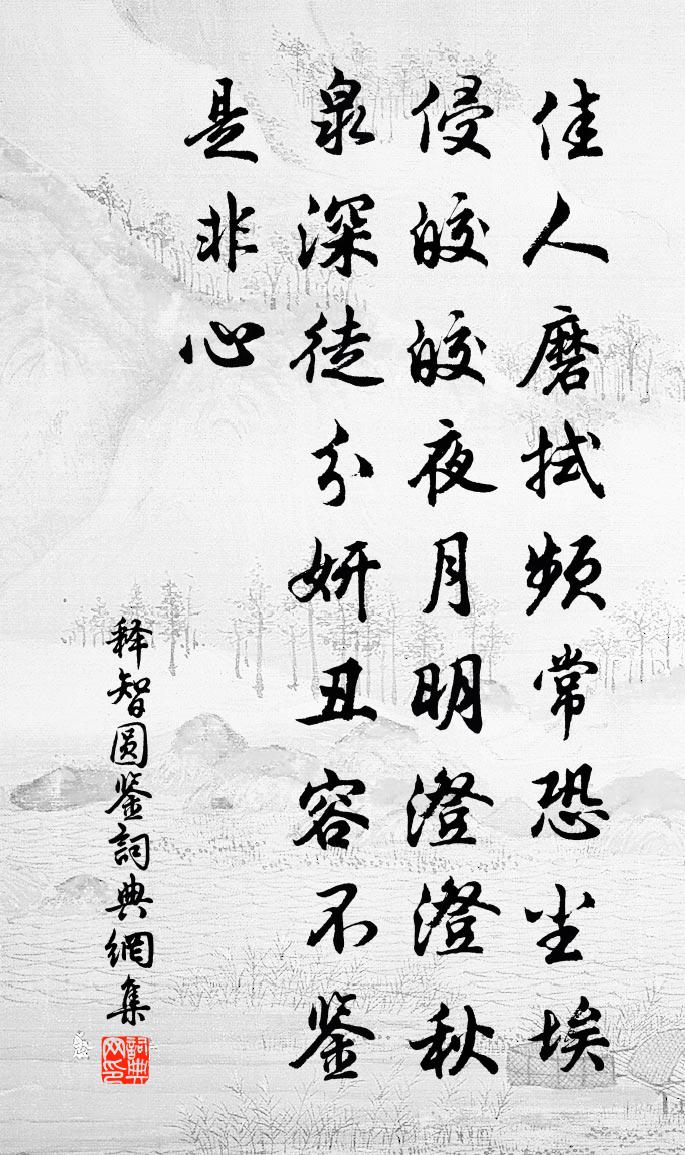 佳人磨拭频常恐尘埃
侵皎皎夜月明澄澄秋
泉深徒分妍丑容不鉴
是非心
释智圆鉴詞典網集
詞典
网印